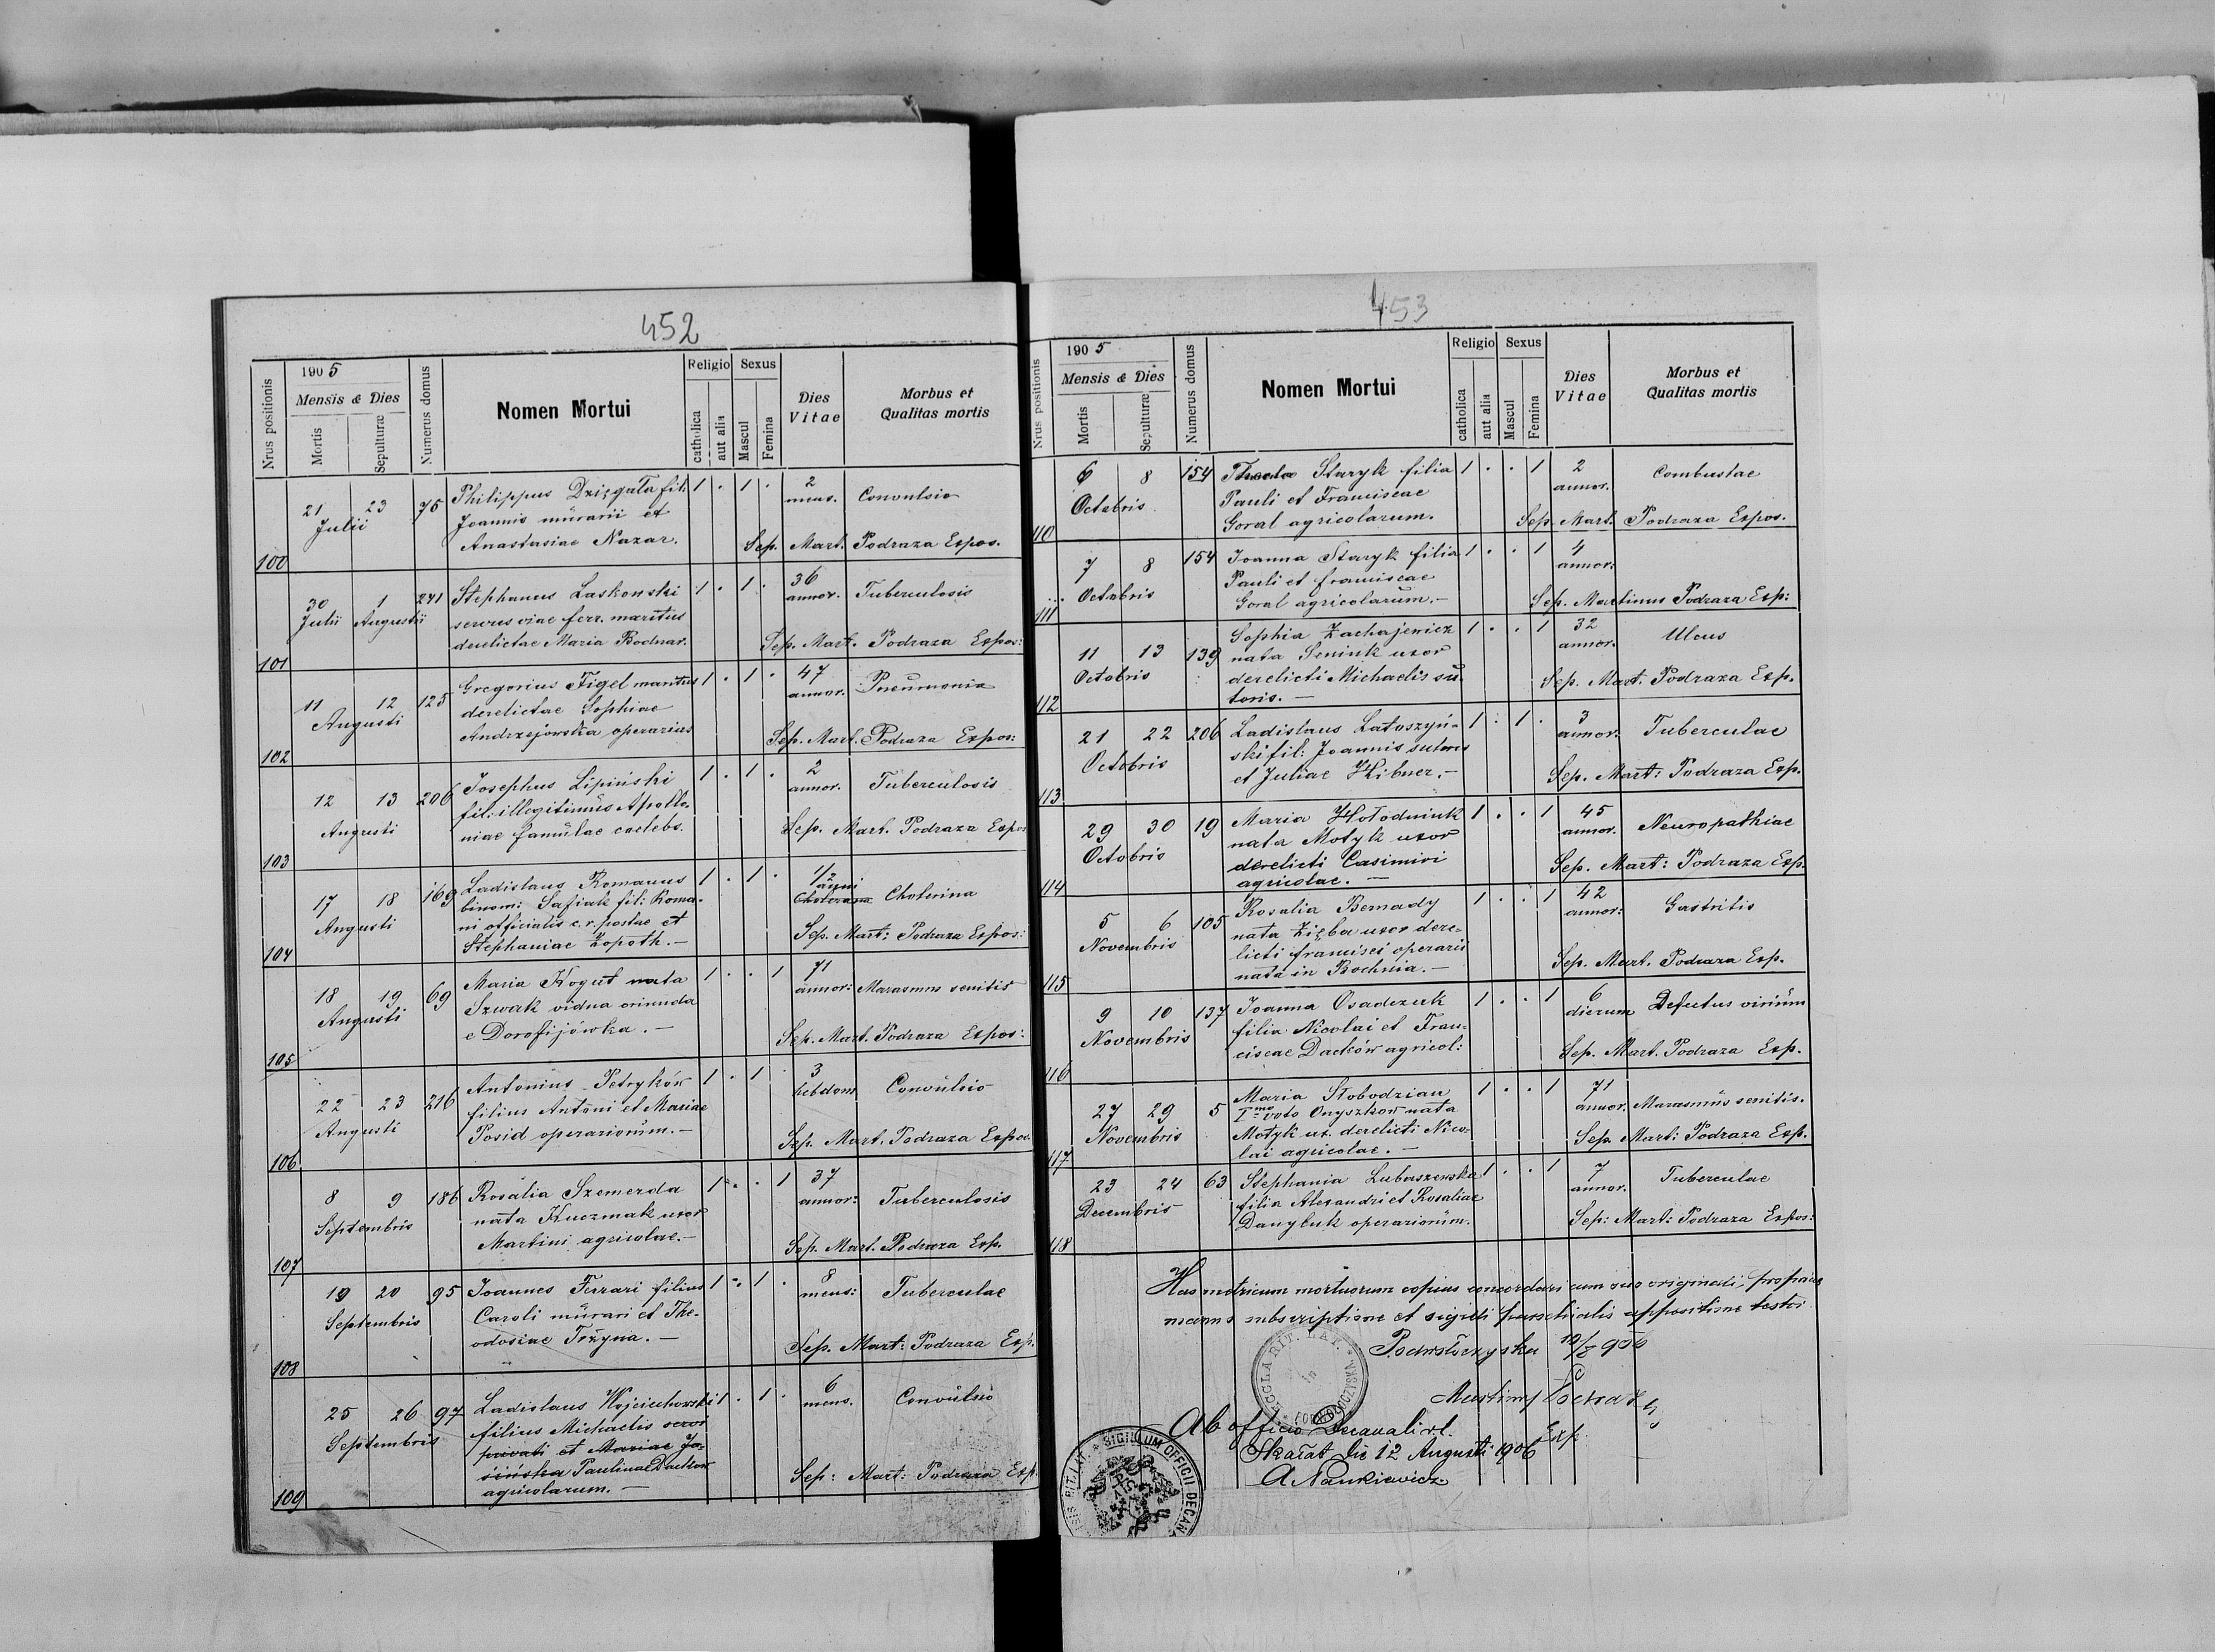 452
Nrus positionis
1905
Mensis & Dies
Mortis
Sepulturæ
Numerus domus
Nomen Mortui
Religio
catholica
aut alia
Sexus
Mascul
Femina
Dies Vitae
Morbus et
Qualitas mortis
21 23 75 Philippus Dzizgała fil: 1 . 1 . 2 Convulsio
Julii Joannis mürarii et mens.
100 Anastasiae Nazar. Sep. Mart. Podraza Expos.
30 1 241 Stephanus Laskowski 1 . 1 . 36 Tuberculosis
Julii Augusti servus viae ferr. maritus annor.
101 derelictae Maria Bodnar. Sep. Mart. Podraza Expos:
11 12 125 Gregorius Figel maritus 1 . 1 . 47 Pneümonia
Augusti derelictae Sophiae annor.
102 Andrzejowska operarius Sep. Mart. Podraza Expos:
12 13 206 Josephus Lipiński 1 . 1 . 2 Tuberculosis
Augusti fil: illegitimüs Apollo- annor.
103 niae famülae caelebs. Sep. Mart. Podraza Expos
17 18 169 Ladislaus Romanus 1 . 1 . 1/2 anni Cholerina
Augusti binom: Safiak fil: Roma-
ni officialis c. r. postae et Sep. Mart: Podraza Expos:
104 Stephaniae Zopoth. —
18 19 69 Maria Kogut nata 1 . . 1 71 Marasmus senilis
Augusti Szwak vidua oriunda annor:
105 e Dorofijówka. — Sep. Mart. Podraza Expos:
22 23 216 Antonius Petryków 1 . 1 3 Convülsio
Augusti filius Antoni et Mariae hebdom
106 Posid operariorüm. — Sep. Mart. Podraza Expos
8 9 186 Rosalia Szemerda 1 . . 1 37 Tuberculosis
Septembris nata Kuczmak uxor annor:
107 Martini agricolae. — Sep. Mart. Podraza Exp.
19 20 95 Joannes Ferrari filius 1 . 1 . 8 Tuberculae
Septembris Caroli mürari et The- mens:
108 odosiae Tržyna. — Sep. Mart: Podraza Exp.
25 26 97 Ladislaus Wojciechowski 1 . 1 . 6 Convülsio
Septembris filius Michaelis servi mens.
privati et Mariae Ja-
sińska Paulinae Dachów Sep: Mart: Podraza Exp.
109 agricolarum. —
453
Nrus positionis
1905
Mensis & Dies
Mortis
Sepulturæ
Numerus domus
Nomen Mortui
Religio
catholica
aut alia
Sexus
Mascul
Femina
Dies Vitae
Morbus et
Qualitas mortis
6 8 154 Thecla Staryk filia 1 . . 1 2 Combustae
Octobris Pauli et Franciscae annor.
110 Goral agricolarum. Sep. Mart. Podraza Expos.
7 8 154 Joanna Staryk filia 1 . . 1 4
Octobris Pauli et franciscae annor:
111 Goral agricolarüm. — Sep. Martinus Podraza Exp:
11 13 139 Sophia Zachajewicz 1 . . 1 32 Ulcus
Octobris nata Seniuk uxor annor.
derelicti Michaelis su- Sep. Mart. Podraza Exp.
112 toris. —
21 22 206 Ladislaus Latoszyń- 1 . 1 . 3 Tuberculae
Octobris ski fil: Joannis sutoris annor.
113 et Juliae Hibner. — Sep. Mart: Podraza Exp.
29 30 19 Maria Hołodniuk 1 . . 1 45 Neuropathiae
Octobris nata Motyk uxor annor.
derelicti Casimiri Sep. Mart: Podraza Exp.
114 agricolae. —
5 6 105 Rosalia Bernady 1 . . 1 42 Gastritis
Novembris nata Zięba uxor dere- annor:
licti francisci operarii Sep. Mart. Podraza Exp.
115 nata in Bochnia. —
9 10 137 Joanna Osadczuk 1 . . 1 6 Defectus viriüm
Novembris filia Nicolai et Fran- dierum
116 ciscae Dacków agricol: Sep. Mart. Podraza Exp.
27 29 5 Maria Słobodzian 1 . . 1 71 Marasmüs senilis.
Novembris Imo voto Onyszków nata annor.
Motyk ux. derelicti Nico- Sep. Mart: Podraza Exp.
117 lai agricolae. —
23 24 63 Stephania Lubaszewska 1 . . 1 7 Tuberculae
Decembris filia Alexandri et Rosaliae annor.
118 Danyluk operariorüm. Sep: Mart: Podraza Expos:
Has metricum mortuorum copias concordari cum suo originali, propriae
manus subscriptione et sigilli parochialis appositione testor.
Podwołoczyska 906
Martinus Podraza
Exp.
Ab officio Decanali r.l.
Skałat die 12 Augusti 1906
A Nankiewicz
ECCLA RIT. LAT.
SIGILLUM OFFICII DECAN